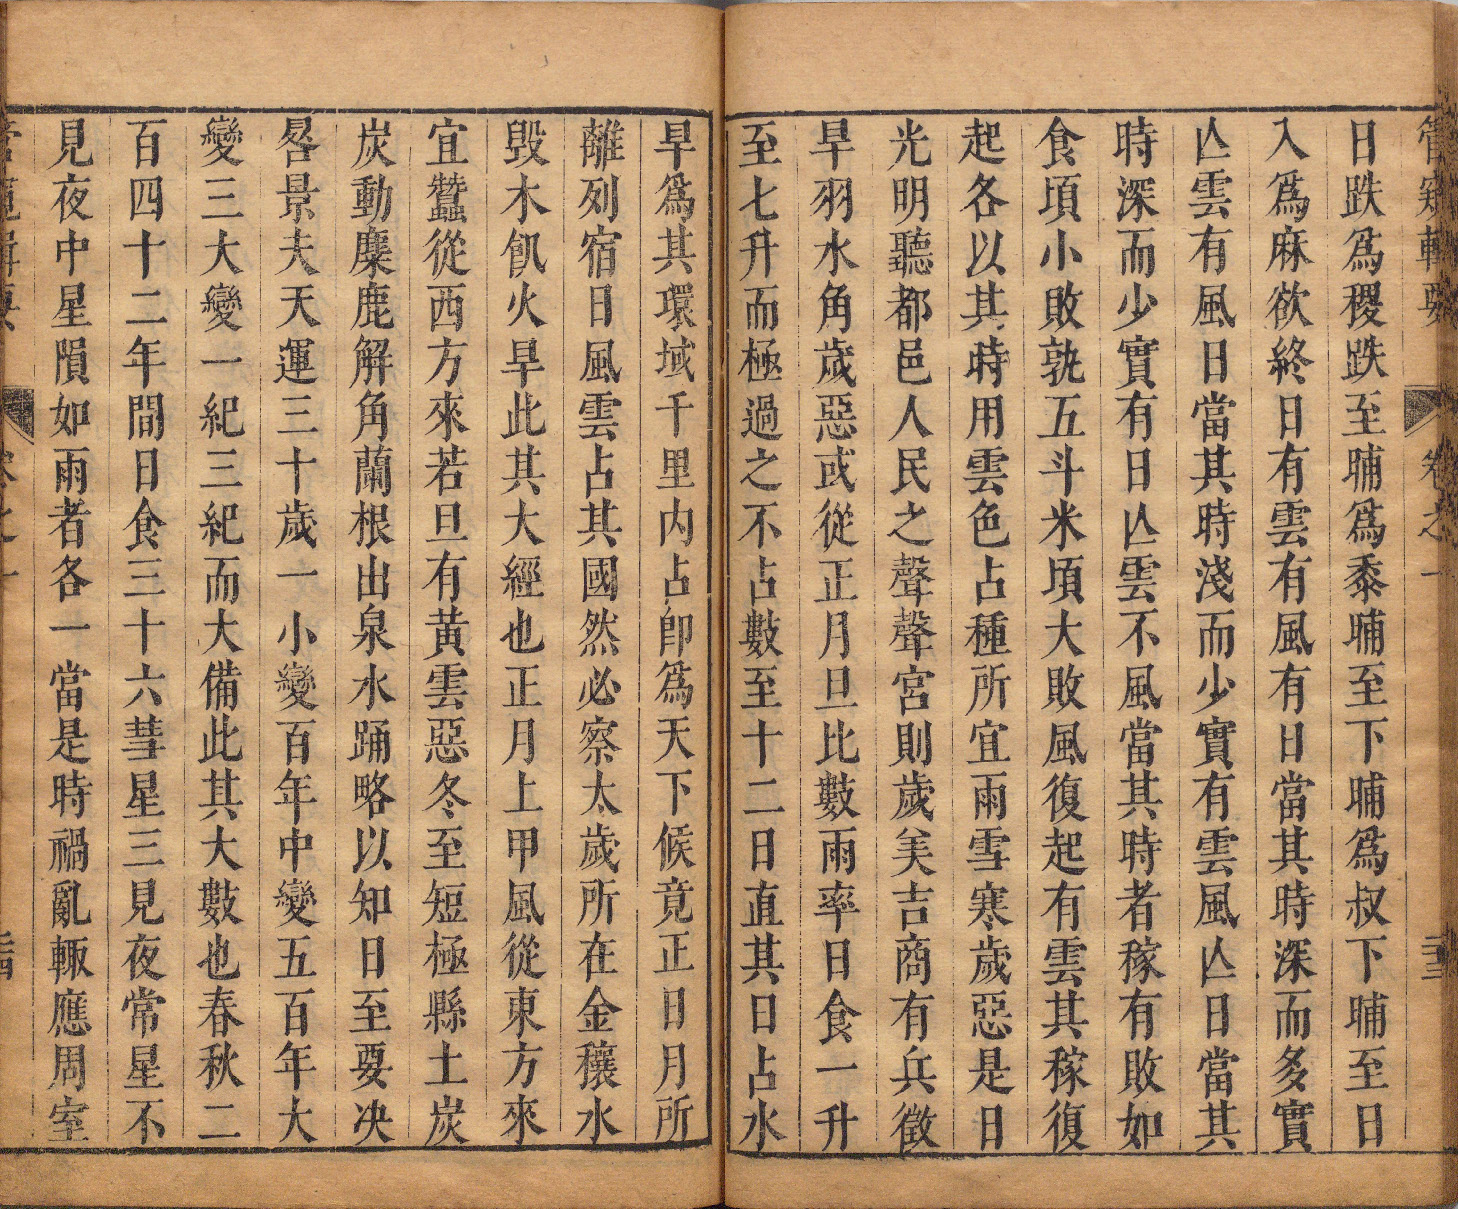 管窺輯要 卷之一
日跌爲稷跌至晡爲黍晡至下晡爲叔下晡至日
入爲麻欲終日有雲有風有日當其時深而多實
亾雲有風日當其時淺而少實有雲風亾日當其
時深而少實有日亾雲不風當其時者稼有敗如
食頃小敗孰五斗米頃大敗風復起有雲其稼復
起各以其時用雲色占種所宜雨雪寒歲惡是日
光明聽都邑人民之聲聲宮則歲美吉商有兵徵
旱羽水角歲惡或從正月旦比數雨率日食一升
至七升而極過之不占數至十二日直其日占水
旱爲其環域千里内占卽爲天下候竟正日月所
離列宿日風雲占其國然必察太歲所在金穰水
毀木飢火旱此其大經也正月上甲風從東方來
宜蠶從西方來若旦有黃雲惡冬至短極縣土炭
炭動麋鹿解角蘭根出泉水踊略以知日至要决
晷景夫天運三十歲一小變百年中變五百年大
變三大變一紀三紀而大備此其大數也春秋二
百四十二年間日食三十六彗星三見夜常星不
見夜中星隕如雨者各一當是時禍亂輒應周室